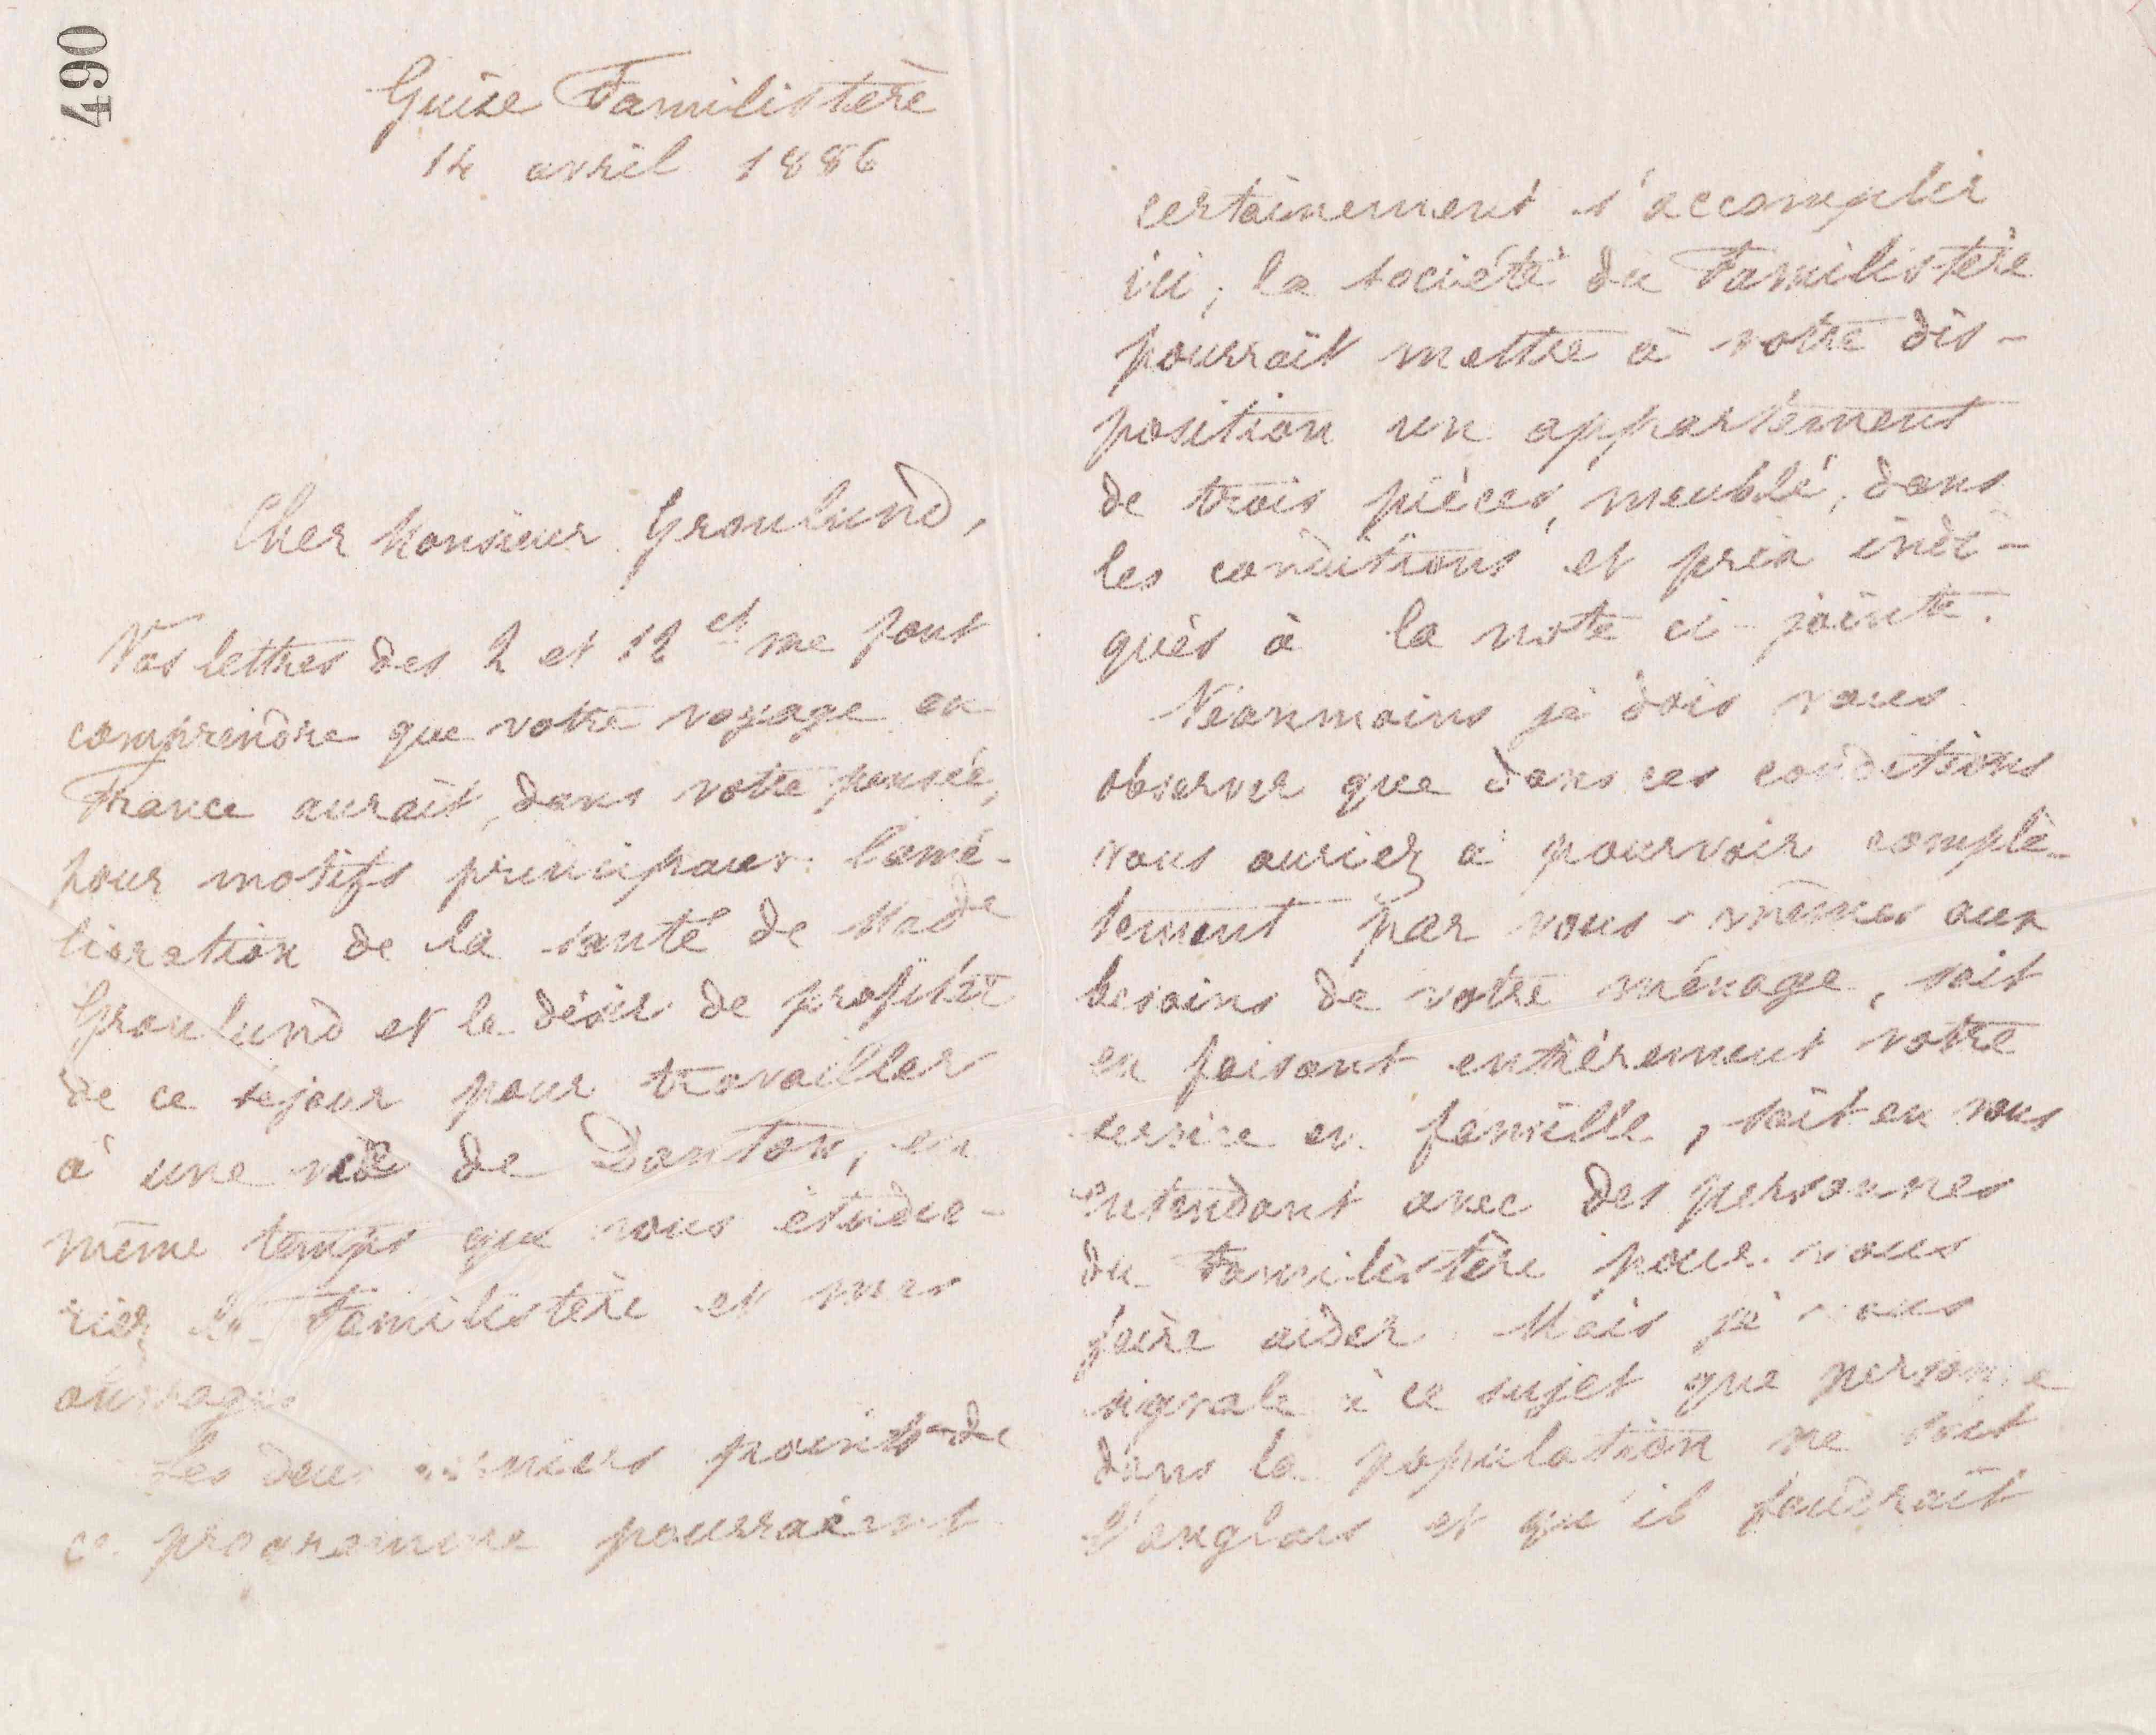 490
Guise Familistère
14 avril 1886
Cher Monsieur Gronlund,
Vos lettres des 2 et 12 ct me font
comprendre que votre voyage en
France aurait, dans votre pensée,
pour motifs principaux l'amé-
lioration de la santé de Made
Gronlund et le désir de profiter
de ce séjour pour travailler
à une vie de Danton, en
même temps que vous étudie-
riez le Familistère et mes
ouvrages
Les deux derniers points de
ce programme pourraient
certainement s'accomplir
ici, la société du Familistère
pourrait mettre à votre dis-
position un appartement
de trois pièces, meublé, dans
les conditions et prix indi-
qués à la note ci-jointe.
Néanmoins je dois vous
observer que dans ces conditions
vous auriez à pourvoir complè-
tement par vous-mêmes aux
besoins de votre ménage, soit
en faisant entièrement votre
service en famille, soit en vous
entendant avec des personnes
du Familistère pour vous
faire aider. Mais je vous
signale à ce sujet que personne
dans la population ne sait
l'anglais et qu'il faudrait